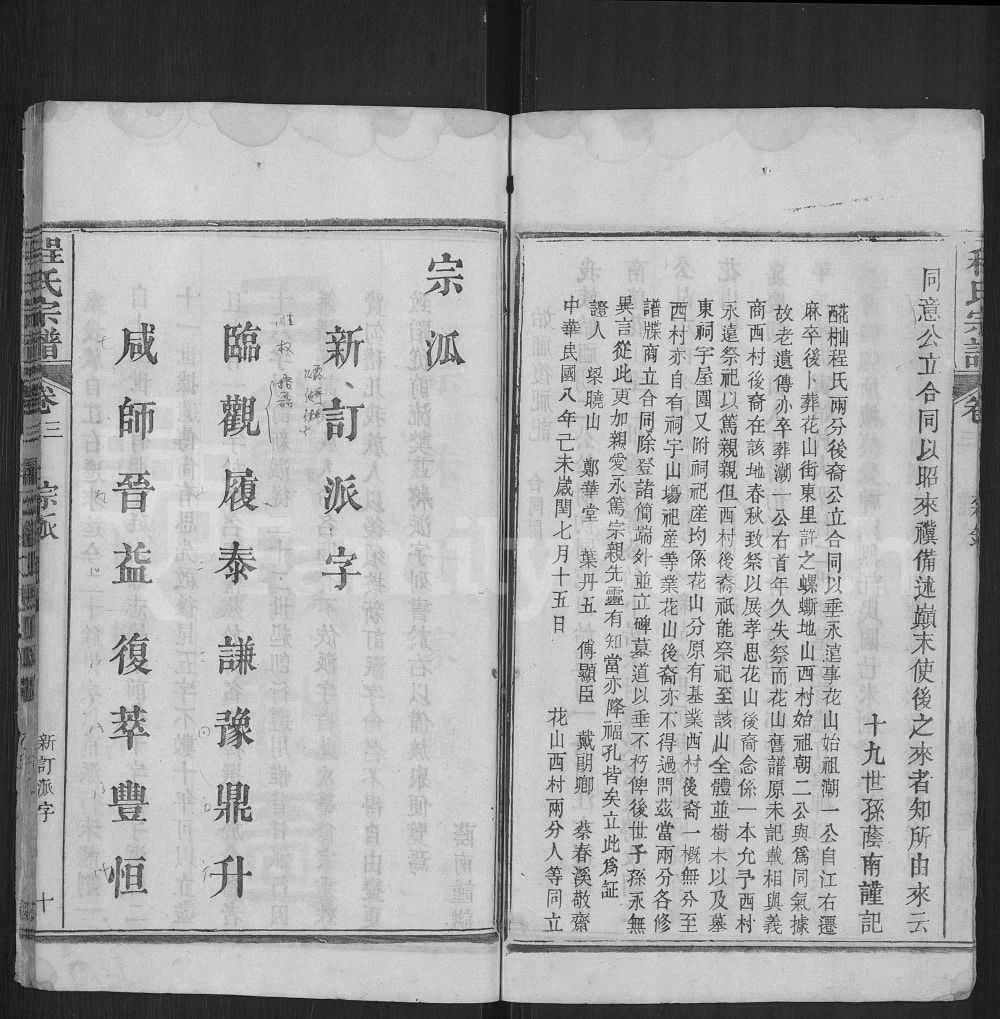 同意公立合同以昭來禩備述巔末使後之來者知所由來云
十九世孫蔭南謹記
程氏兩分後裔公立合同以垂永遠事花山始祖潮一公自江右遷
麻卒後卜葬花山街東里許之螺螄地山西村始祖朝二公與爲同氣據
故老遺傳亦卒葬潮一公右首年久失祭而花山舊譜原未記載相與義
商西村後裔在該地春秋致祭以展孝思花山後裔念係一本允予西村
永遠祭祀以篤親親但西村後裔祇能祭祀至該山全體並樹木以及墓
東祠宇屋園又附祠祀産均係花山分原有基業西村後裔一概無分至
西村亦自有祠宇山場祀産等業花山後裔亦不得過問茲當兩分各修
譜牒商立合同除登諸簡端外並立碑墓道以垂不朽俾後世子孫永無
異言從此更加親愛永篤宗親先靈有知當亦降福孔皆矣立此爲証
證人 梁曉山 鄭華堂 葉丹五 傅顯臣 戴明卿 蔡春溪敬齋
中華民國八年己未歲閏七月十五日 花山西村兩分人等同立
宗派
新訂派字
臨觀履泰謙豫鼎升
咸師晉益復萃豐恒
程氏宗譜 卷三 宗派 新訂派字 十